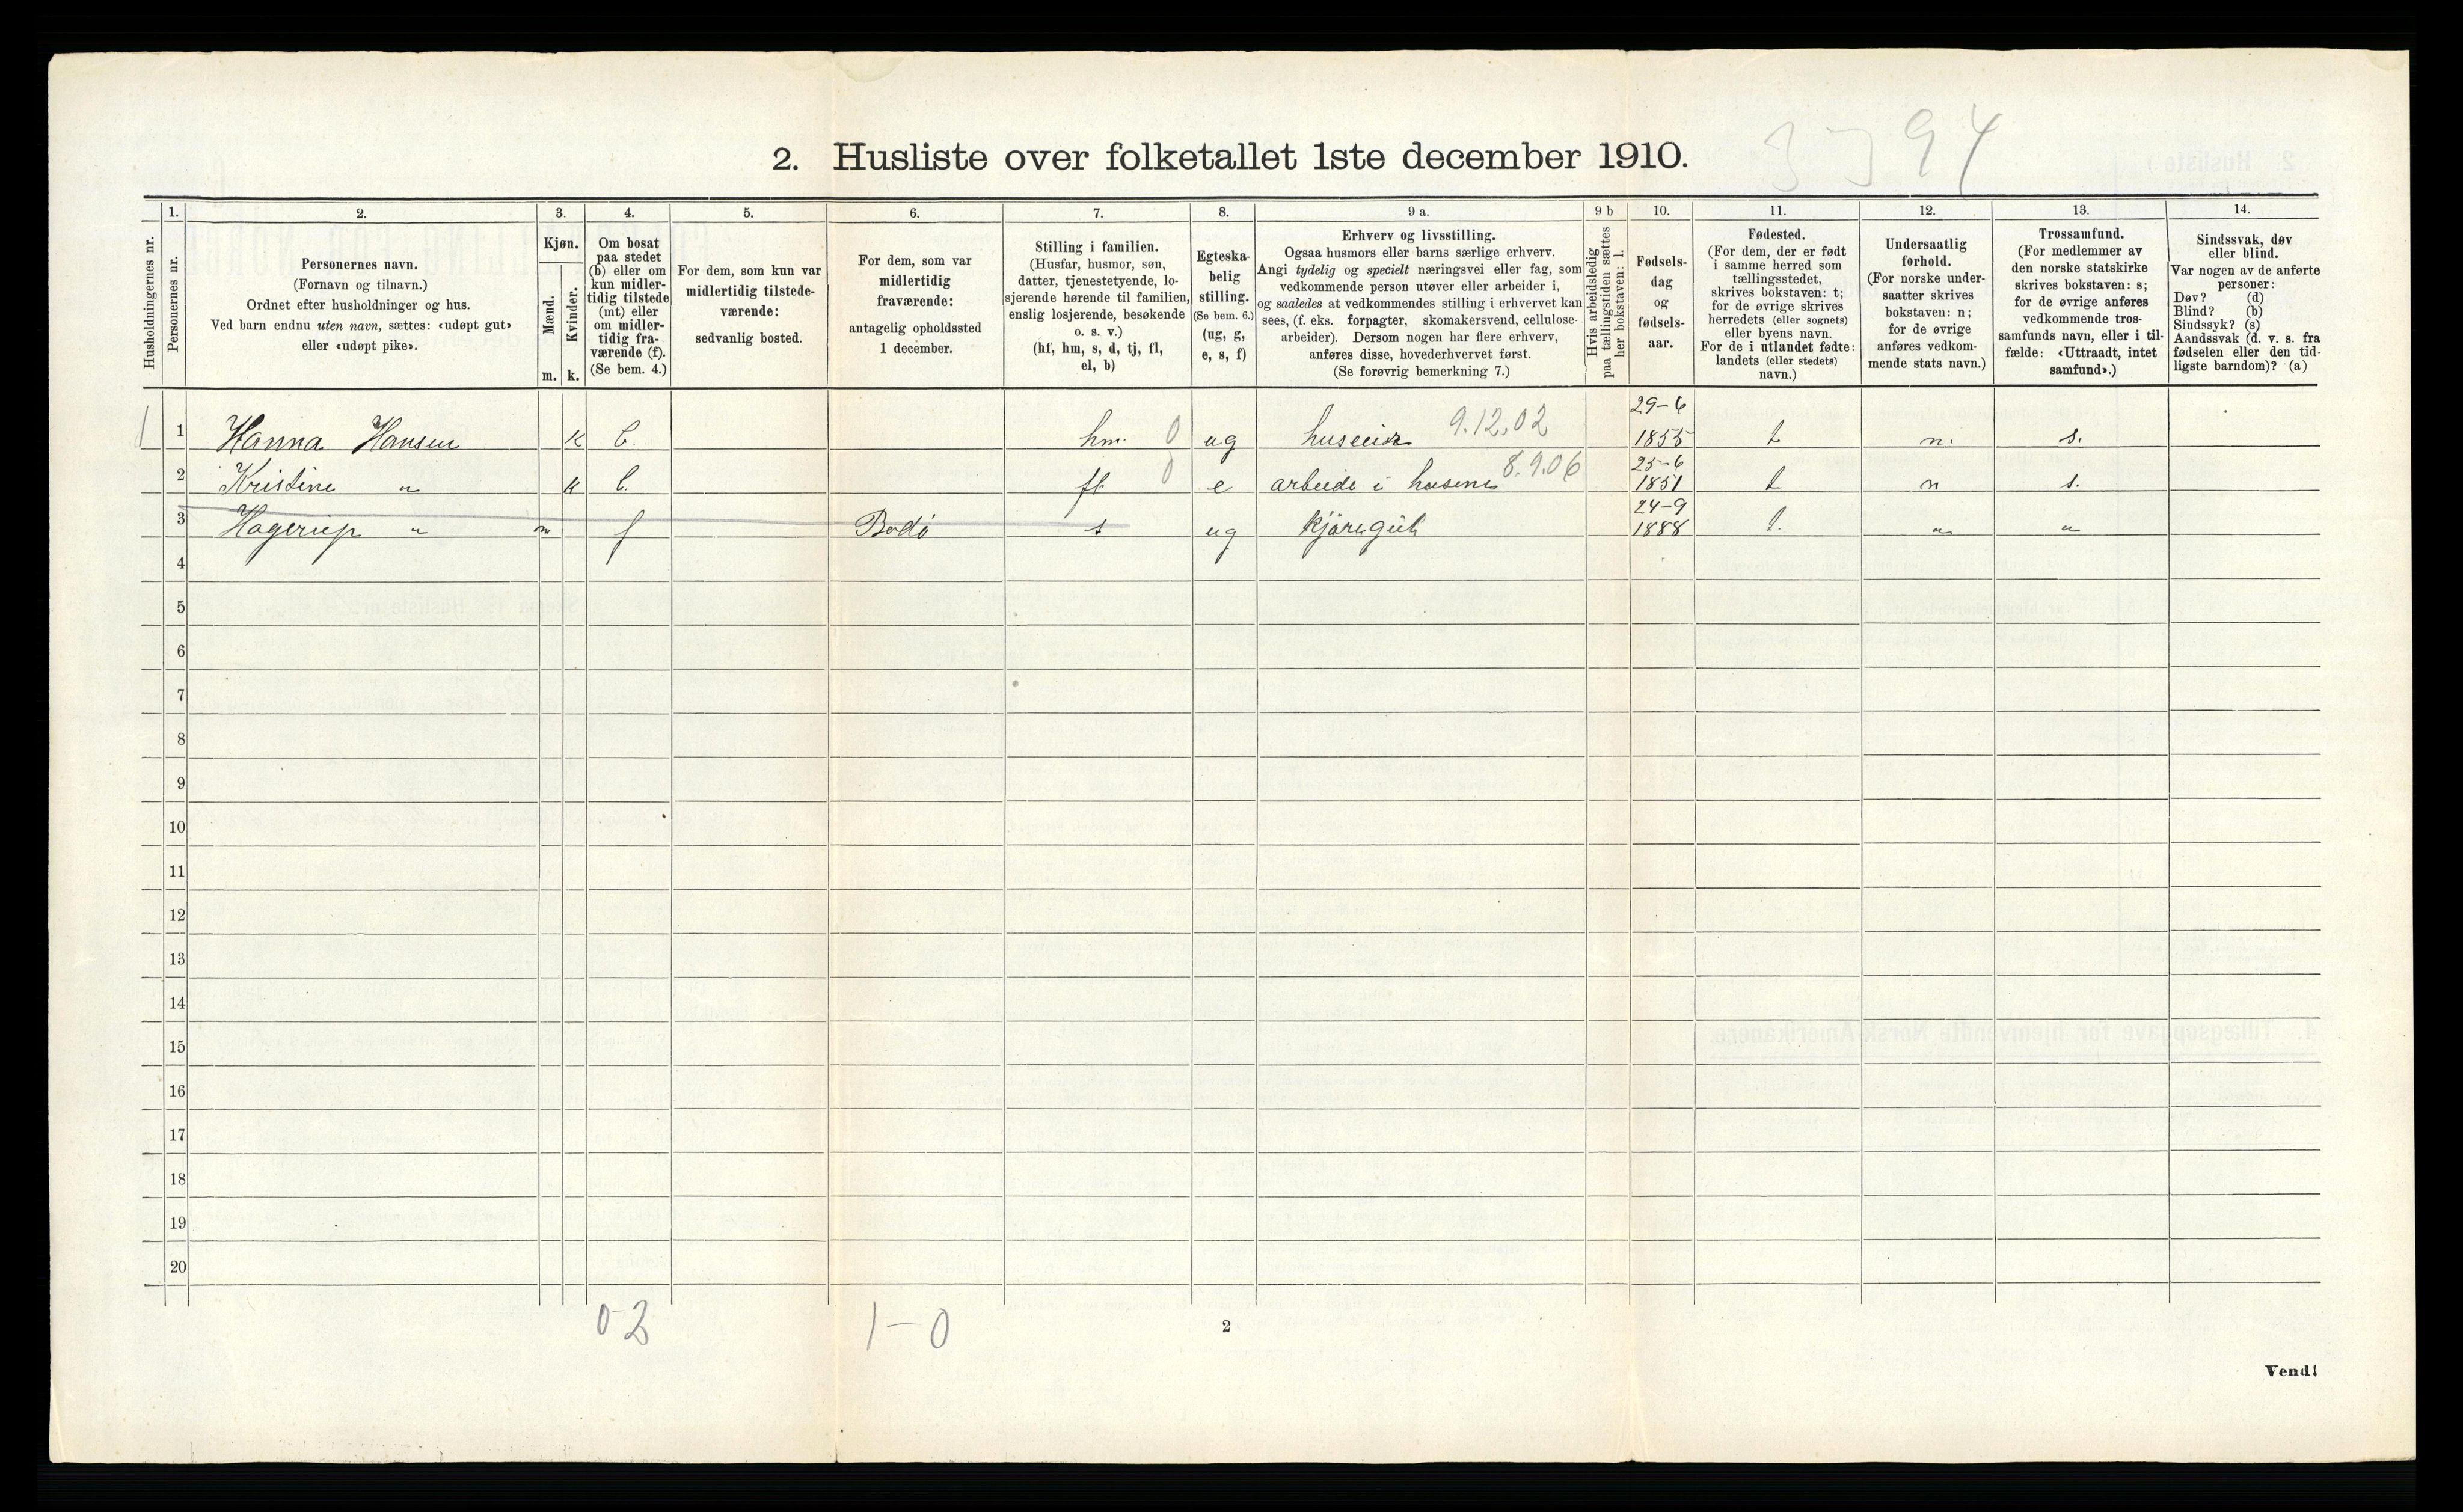 3394
2. Husliste over folketallet 1ste december 1910.
Husholdningernes nr.
1.
Personernes nr.
2.
Personernes navn.
(Fornavn og tilnavn.)
Ordnet efter husholdninger og hus.
Ved barn endnu uten navn, sættes: «udøpt gut»
eller «udøpt pike».
3.
Kjøn.
Mænd.
Kvinder.
m. k.
4.
Om bosat
paa stedet
(b) eller om
kun midler-
tidig tilstede
(mt) eller
om midler-
tidig fra-
værende (f).
(Se bem. 4.)
5.
For dem, som kun var
midlertidig tilstede-
værende:
sedvanlig bosted.
6.
For dem, som var
midlertidig
fraværende:
antagelig opholdssted
1 december.
7.
Stilling i familien.
(Husfar, husmor, søn,
datter, tjenestetyende, lo-
sjerende hørende til familien,
enslig losjerende, besøkende
o. s. v.)
(hf, hm, s, d, tj, fl,
el, b)
8.
Egteska-
belig
stilling.
(Se bem. 6.)
(ug, g,
e, s, f)
9 a.
Erhverv og livsstilling.
Ogsaa husmors eller barns særlige erhverv.
Angi tydelig og specielt næringsvei eller fag, som
vedkommende person utøver eller arbeider i,
og saaledes at vedkommendes stilling i erhvervet kan
sees, (f. eks. forpagter, skomakersvend, cellulose-
arbeider). Dersom nogen har flere erhverv,
anføres disse, hovederhvervet først.
(Se forøvrig bemerkning 7.)
9 b
Hvis arbeidsledig
paa tællingstiden sættes
her bokstaven: l.
10.
Fødsels-
dag
og
fødsels-
aar.
11.
Fødested.
(For dem, der er født
i samme herred som
tællingsstedet,
skrives bokstaven: t;
for de øvrige skrives
herredets (eller sognets)
eller byens navn.
For de i utlandet fødte:
landets (eller stedets)
navn.)
12.
Undersaatlig
forhold.
(For norske under-
saatter skrives
bokstaven: n;
for de øvrige
anføres vedkom-
mende stats navn.)
13.
Trossamfund.
(For medlemmer av
den norske statskirke
skrives bokstaven: s;
for de øvrige anføres
vedkommende tros-
samfunds navn, eller i til-
fælde: «Uttraadt, intet
samfund».)
14.
Sindssvak, døv
eller blind.
Var nogen av de anførte
personer:
Døv? (d)
Blind? (b)
Sindssyk? (s)
Aandssvak (d. v. s. fra
fødselen eller den tid-
ligste barndom)? (a)
1 Hanna Hansen k b. hm. 0 ug huseier 9.12.02 29-6 1855 t n. s.
2 Kristine " k b. fl 0 e arbeide i husene 8.9.06 25-6 1851 t n s.
3 Hagerup " m f Bodø s ug kjøregut 24-9 1888 t. " "
4
5
6
7
8
9
10
11
12
13
14
15
16
17
18
19
20
0-2
1-0
2
Vend!